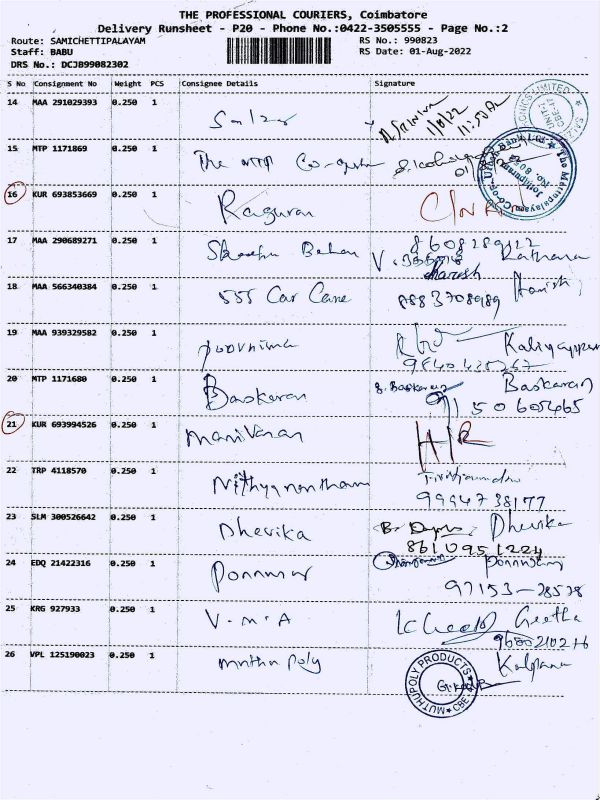 THE PROFESSIONAL COURIERS, Coimbatore
Delivery Runsheet - P20 - Phone No.:0422-3505555 - Page No.:2
Route: SAMICHETTIPALAYAM RS No.: 990823
Staff: BABU RS Date: 01-Aug-2022
DRS No.: DCJB99082302
S No Consignment No Weight PCS Consignee Details Signature
14 MAA 291029393 0.250 1
1/8/22
11:50 AM
15 MTP 1171869 0.250 1 The MTP
16 KUR 693853669 0.250 1 Raguran
17 MAA 290689271 0.250 1 8608289122
18 MAA 566340384 0.250 1 555 Car Care 8883708989 Harish
19 MAA 939329582 0.250 1 Poornima
20 MTP 1171680 0.250 1 Baskaran Baskaran
21 KUR 693994526 0.250 1 Manivanan
22 TRP 4118570 0.250 1 Nithyanantham
9994738177
23 SLM 300526642 0.250 1 Dhevika Dhevika
8610951224
24 EDQ 21422316 0.250 1
97153-28578
25 KRG 927933 0.250 1 V.M.A Geetha
9600210216
26 VPL 125190023 0.250 1 Muthu Poly Kalpana
MUTHUPOLY PRODUCTS CBE